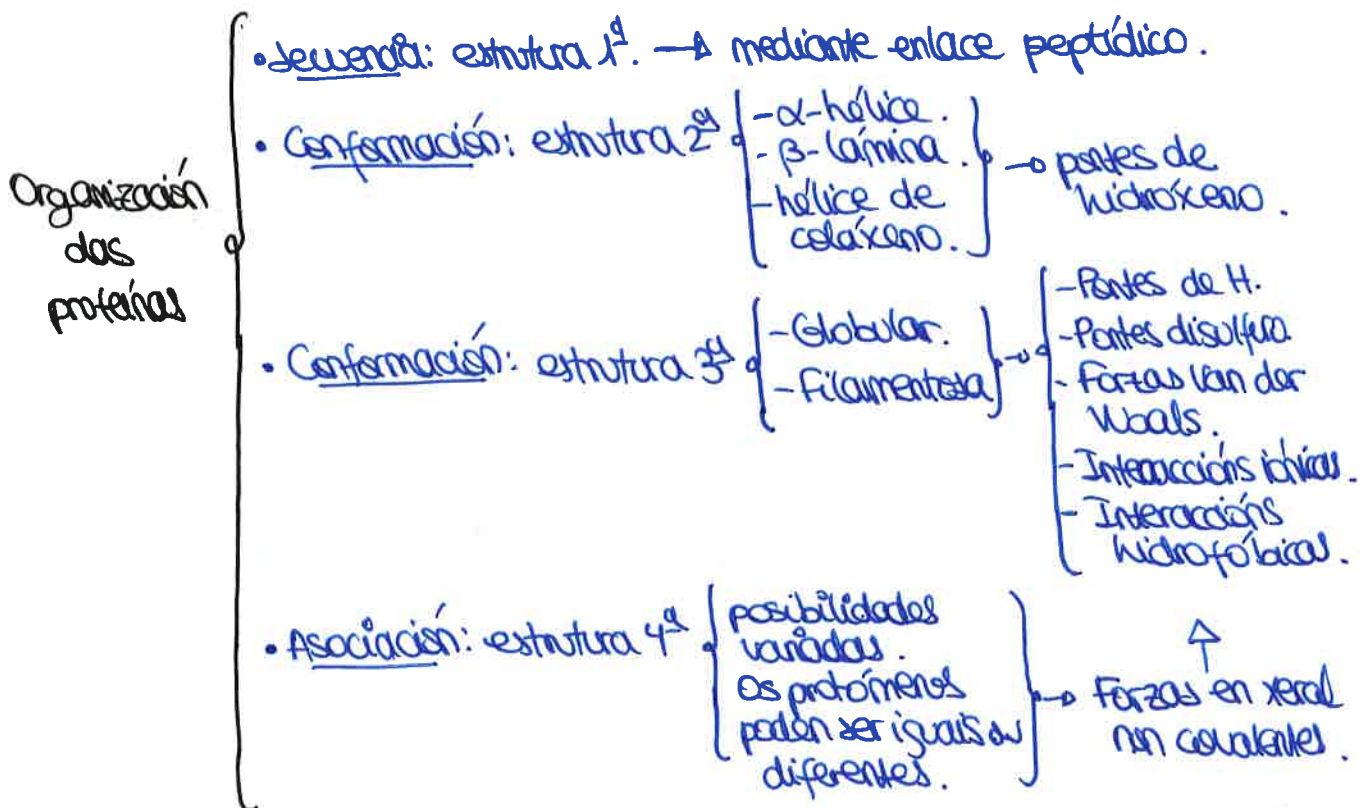 Organización
das
proteínas
• Secuencia: estrutura 1ª. → mediante enlace peptídico.
• Conformación: estrutura 2ª
- α-hélice.
- β-lámina.
- hélice de
coláxeno.
→ pontes de
hidróxeno.
• Conformación: estrutura 3ª
- Globular.
- Filamentosa
→
- Pontes de H.
- Pontes disulfuro
- Forzas Van der
Waals.
- Interaccións iónicas.
- Interaccións
hidrofóbicas.
• Asociación: estrutura 4ª
posibilidades
variadas.
Os protómenos
poden ser iguais ou
diferentes.
→ Forzas en xeral
non covalentes.